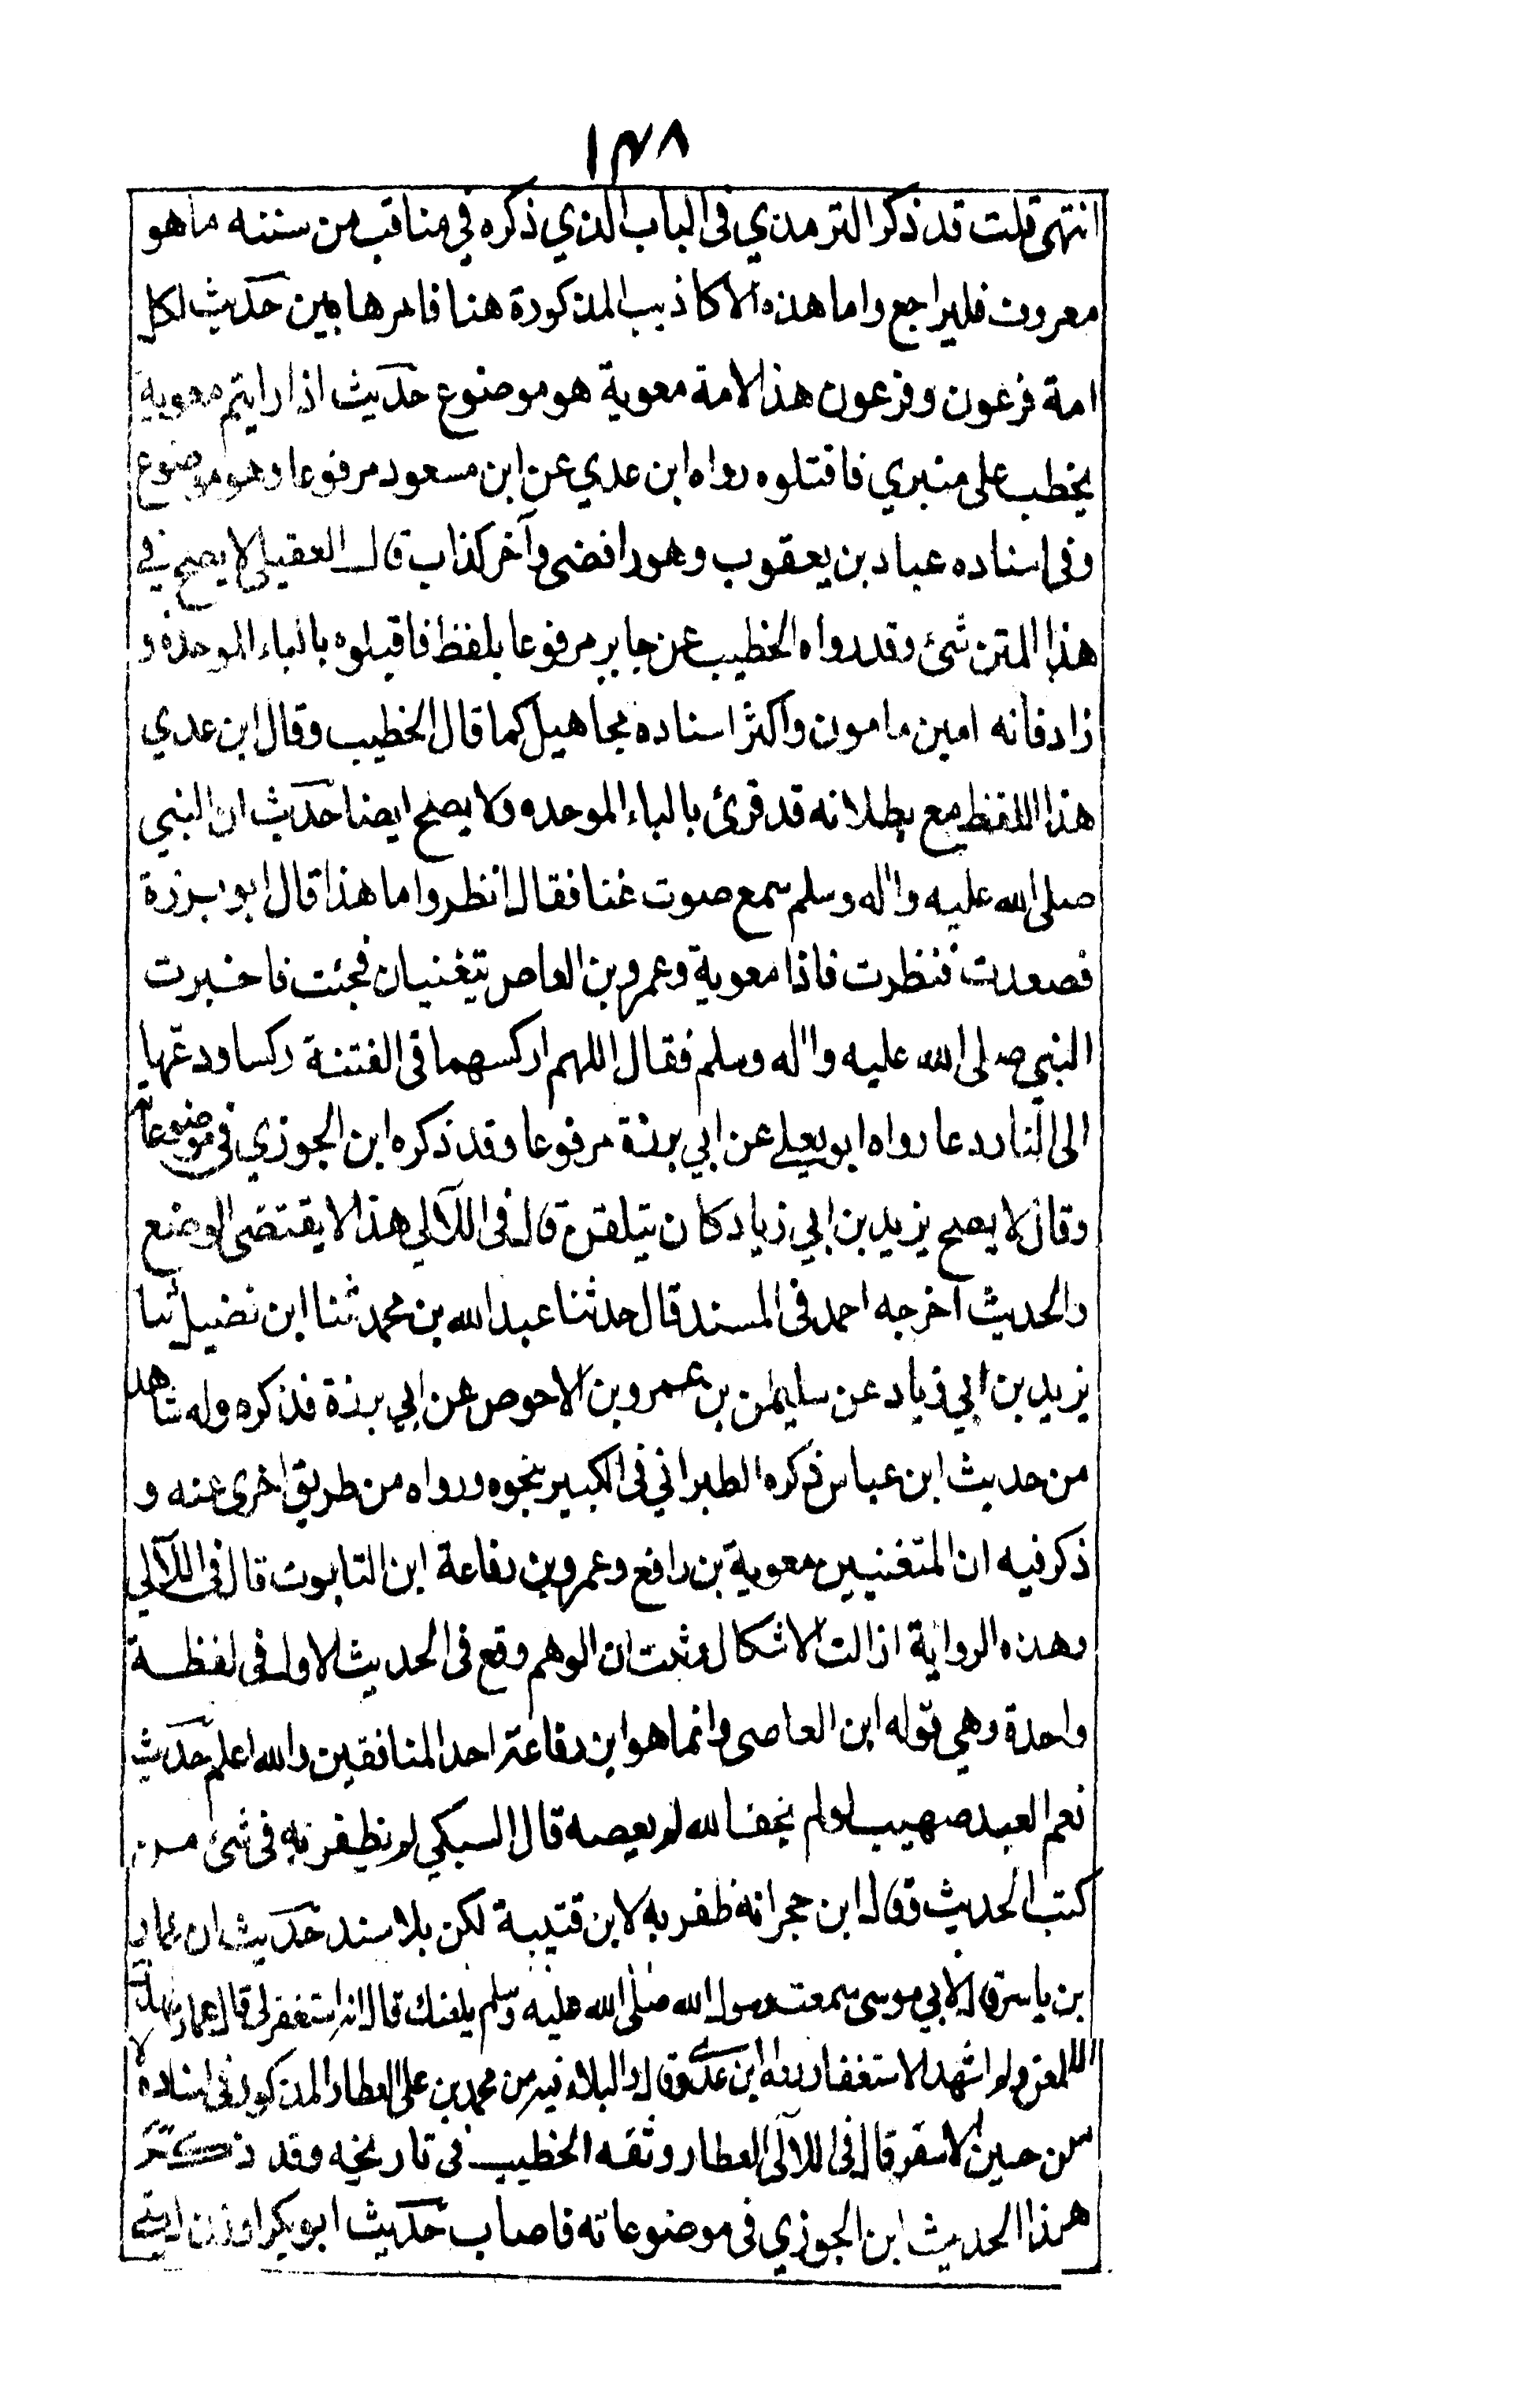 ١٣٨
انتهى قلت قد ذكر الترمذي فى الباب الذي ذكره في مناقب من سننه ما هو
معروف فليراجع واما هذه الاكاذيب المذكورة هنا فامرها بين حديث لكل
امة فرعون وفرعون هذا لامة معوية هو موضوع حديث اذا رايتم معوية
يخطب على منبري فاقتلوه رواه ابن عدي عن ابن مسعود مرفوعا وهو موضوع
وفى اسناده عباد بن يعقوب وهو رافضى وآخر كذاب قال العقيلى لا يصح في
هذا المتن شئ وقد رواه الخطيب عن جابر مرفوعا بلفظ فاقبلوه بالباء الموحدة و
زاد فانه امين مامون واكثر اسناده مجاهيل كما قال الخطيب وقال ابن عدي
هذا اللفظ مع بطلانه قد قرئ بالباء الموحده ولا يصح ايضا حديث ان النبي
صلى الله عليه واله وسلم سمع صوت غنا فقال انظروا ما هذا قال ابو برزة
فصعدت فنظرت فاذا معوية وعمرو بن العاص يتغنيان فجئت فاخبرت
النبي صلى الله عليه واله وسلم فقال اللهم اركسهما فى الفتنة ركسا ودعهما
الى النار دعا رواه ابو يعلى عن ابي برزة مرفوعا وقد ذكره ابن الجوزي فى موضوعاته
وقال لا يصح يزيد بن ابي زياد كان يتلقن قال فى اللآلي هذا لا يقتضى الوضع
والحديث اخرجه احمد فى المسند قال حدثنا عبد الله بن محمد ثنا ابن فضيل ثنا
يزيد بن ابي زياد عن سليمن بن عمرو بن الاحوص عن ابي برزة فذكره وله شاهد
من حديث ابن عباس ذكره الطبراني فى الكبير بنحوه ورواه من طريق اخرى عنه و
ذكر فيه ان المتغنيين معوية بن رافع وعمرو بن رفاعة ابن التابوت قال فى اللآلي
وهذه الرواية ازالت الاشكال وثبت ان الوهم وقع فى الحديث الاول فى لفظة
واحدة وهي قوله ابن العاصى وانما هو ابن رفاعة احد المنافقين والله اعلم حديث
نعم العبد صهيب لولم يخف الله لم يعصه قال السبكي لم نظفر به فى شئ من
كتب الحديث وقال ابن حجر انه ظفر به لابن قتيبة لكن بلا سند حديث ان عمار
بن ياسر قال لابي موسى سمعت رسول الله صلى الله عليه وسلم يلعنك قال انه استغفر لى قال عمار شهدت
اللعن ولم اشهد الاستغفار رواه ابن عدى وقال البلاء فيه من محمد بن على العطار المذكور فى اسناده لا
من حسين الاشقر قال فى اللآلى العطار وثقه الخطيب فى تاريخه وقد ذكر
هذا الحديث ابن الجوزي فى موضوعاته فاصاب حديث ابو بكر اوزن امتي